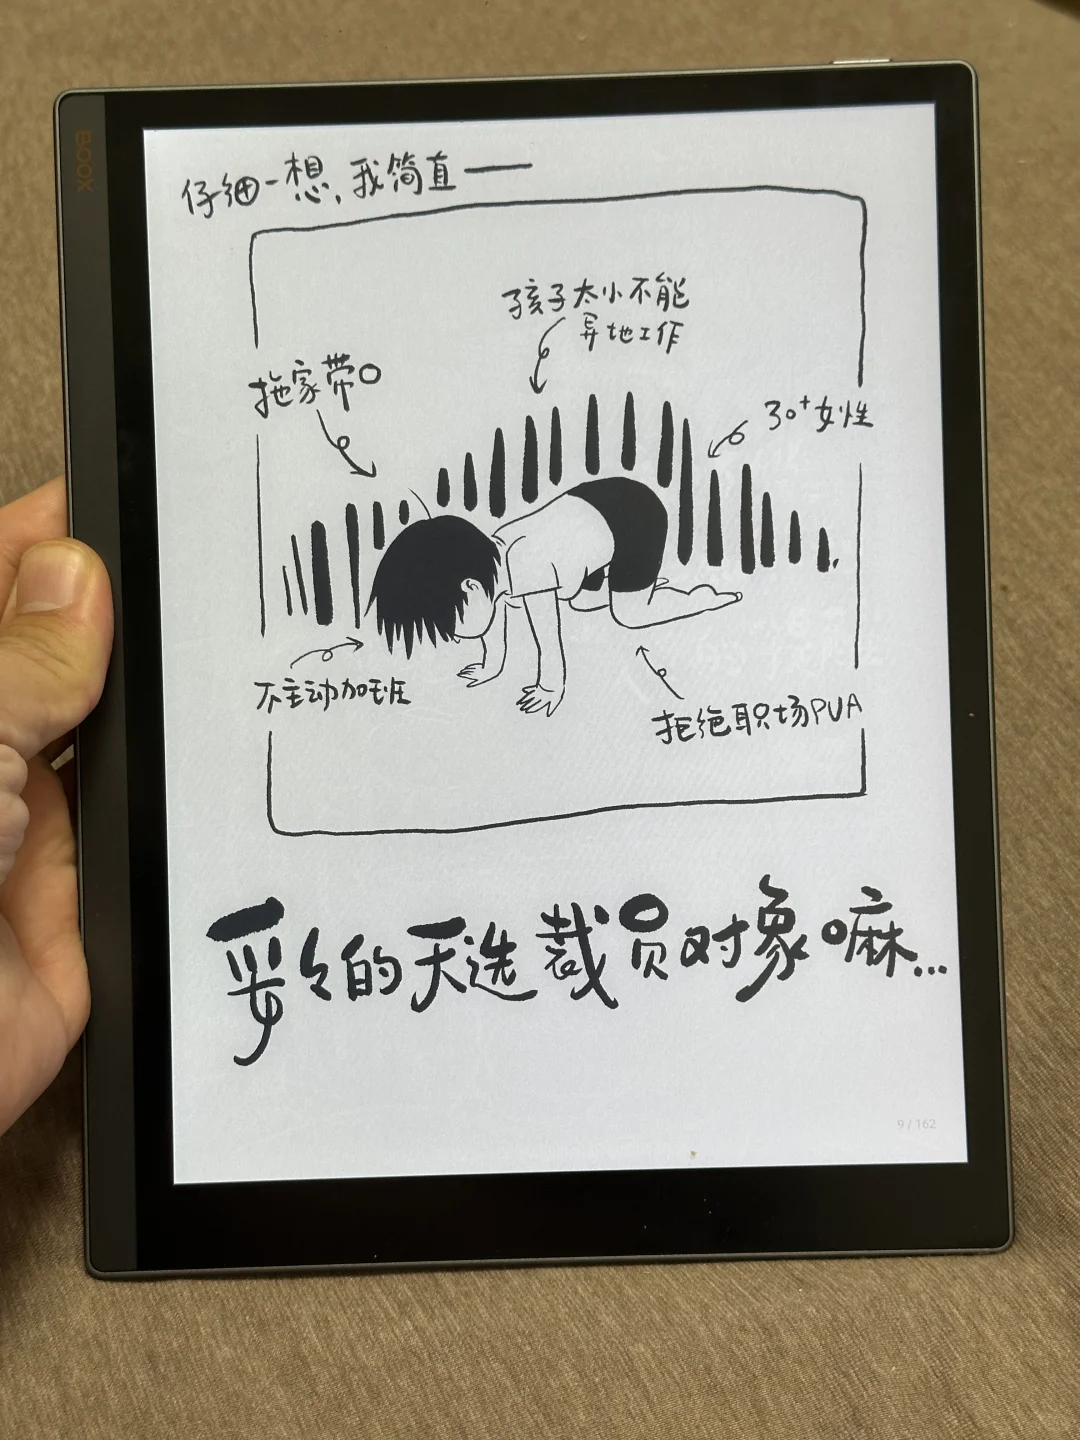 BOOX
仔细一想，我简直——
孩子太小不能
异地工作
拖家带口
30+女性
不主动加班
拒绝职场PUA
妥妥的天选裁员对象嘛...
9/162